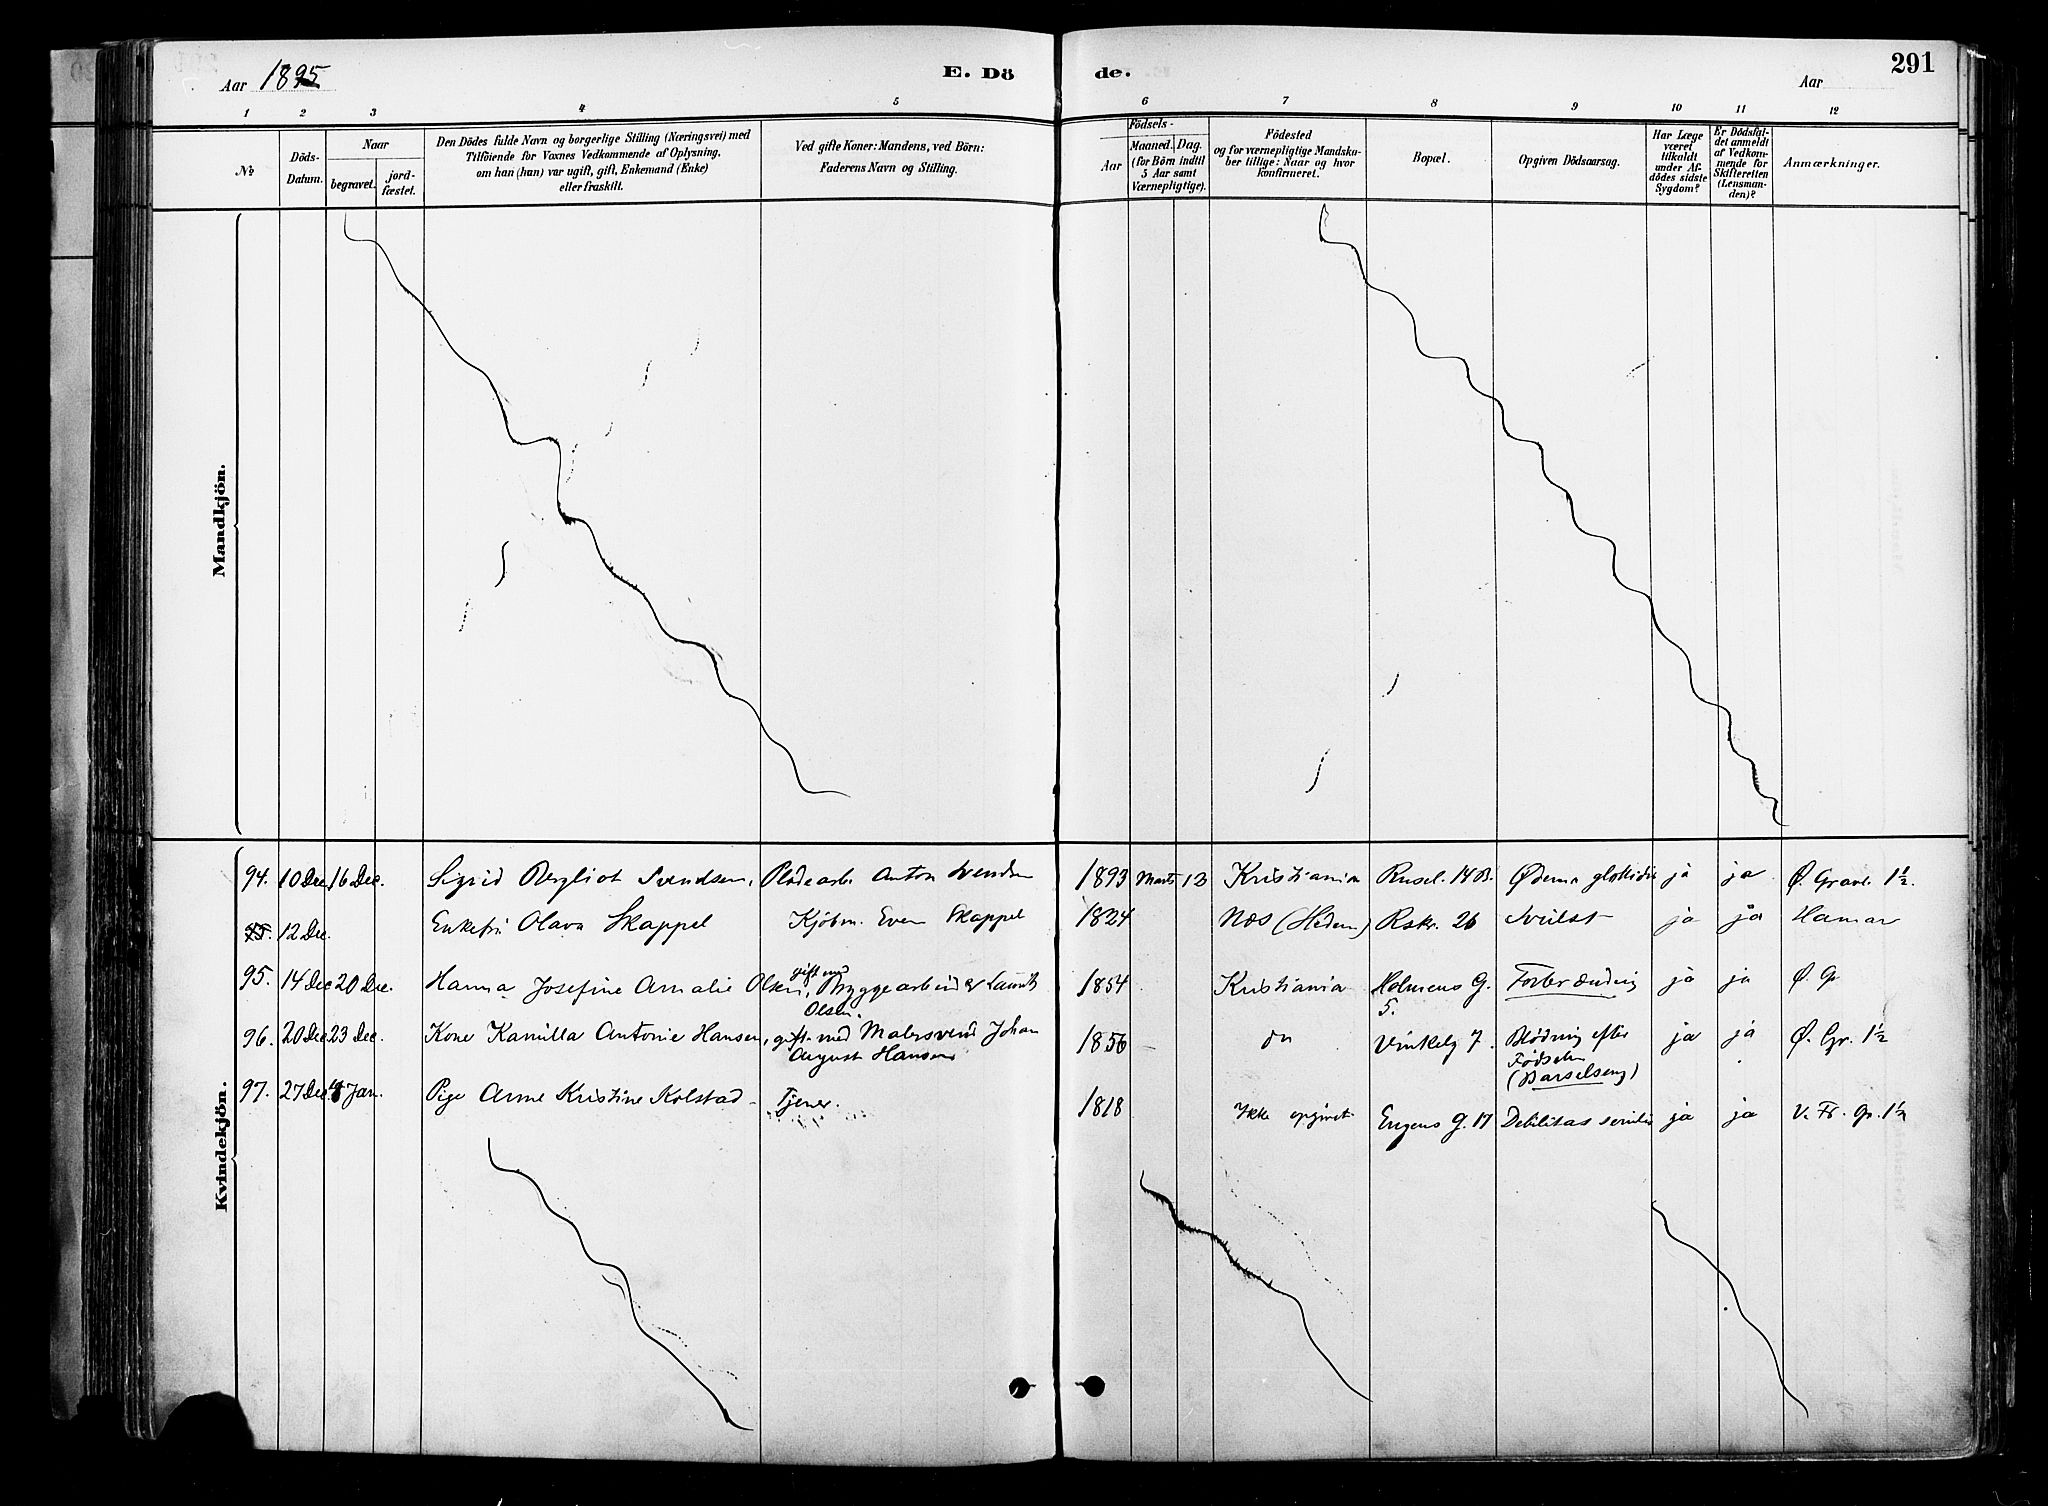 Aar 1895
E. Dö
de.
Aar
291
1 2 3 4 5 6 7 8 9 10 11 12
№
Döds-
Datum.
Naar
begravet.
jord-
fæstet.
Den Dödes fulde Navn og borgerlige Stilling (Næringsvei) med
Tilföiende for Voxnes Vedkommende af Oplysning,
om han (hun) var ugift, gift, Enkemand (Enke)
eller fraskilt.
Ved gifte Koner: Mandens, ved Börn:
Faderens Navn og Stilling.
Födsels-
Aar
Maaned.
Dag.
(for Börn indtil
5 Aar samt
Værnepligtige).
Födested
og for værnepligtige Mandska-
ber tillige: Naar og hvor
konfirmeret.
Bopæl.
Opgiven Dödsaarsag.
Har Læge
været
tilkaldt
under Af-
dödes sidste
Sygdom?
Er Dödsfal-
det anmeldt
af Vedkom-
mende for
Skifteretten
(Lensman-
den)?
Anmærkninger.
Mandkjön.
Kvindekjön.
94. 10 Dec 16 Dec. Sigrid Bergliot Svendsen, Pladearb. Anton Svendsen 1893 Marts 13 Kristiania Rusel. 14 B. Ødema glottidis ja ja Ø. Gravl. 1½.
12 Dec. Enkefru Olava Skappel Kjöbm. Even Skappel 1824 Næs (Hedem) Rskr. 26 Svulst ja ja Hamar
95. 14 Dec 20 Dec. Hanna Josefine Amalie Olsen, gift med Bryggearbeider Laurits
Olsen. 1854 Kristiania Holmens G.
5. Forbrænding ja ja Ø. Gr
96. 20 Dec 23 Dec. Kone Kamilla Antonie Hansen, gift med Malersvend Johan
August Hansen 1856 do Vinkelg 7. Blödning efter
Födselen
(Barselseng) ja ja Ø. Gr. 1½
97. 27 Dec 4 Jan. Pige Anne Kristine Kolstad Tjener. 1818 Ikke opgivet Eugens G. 17 Debilitas senilis ja ja V. Fr. Gr. 1½